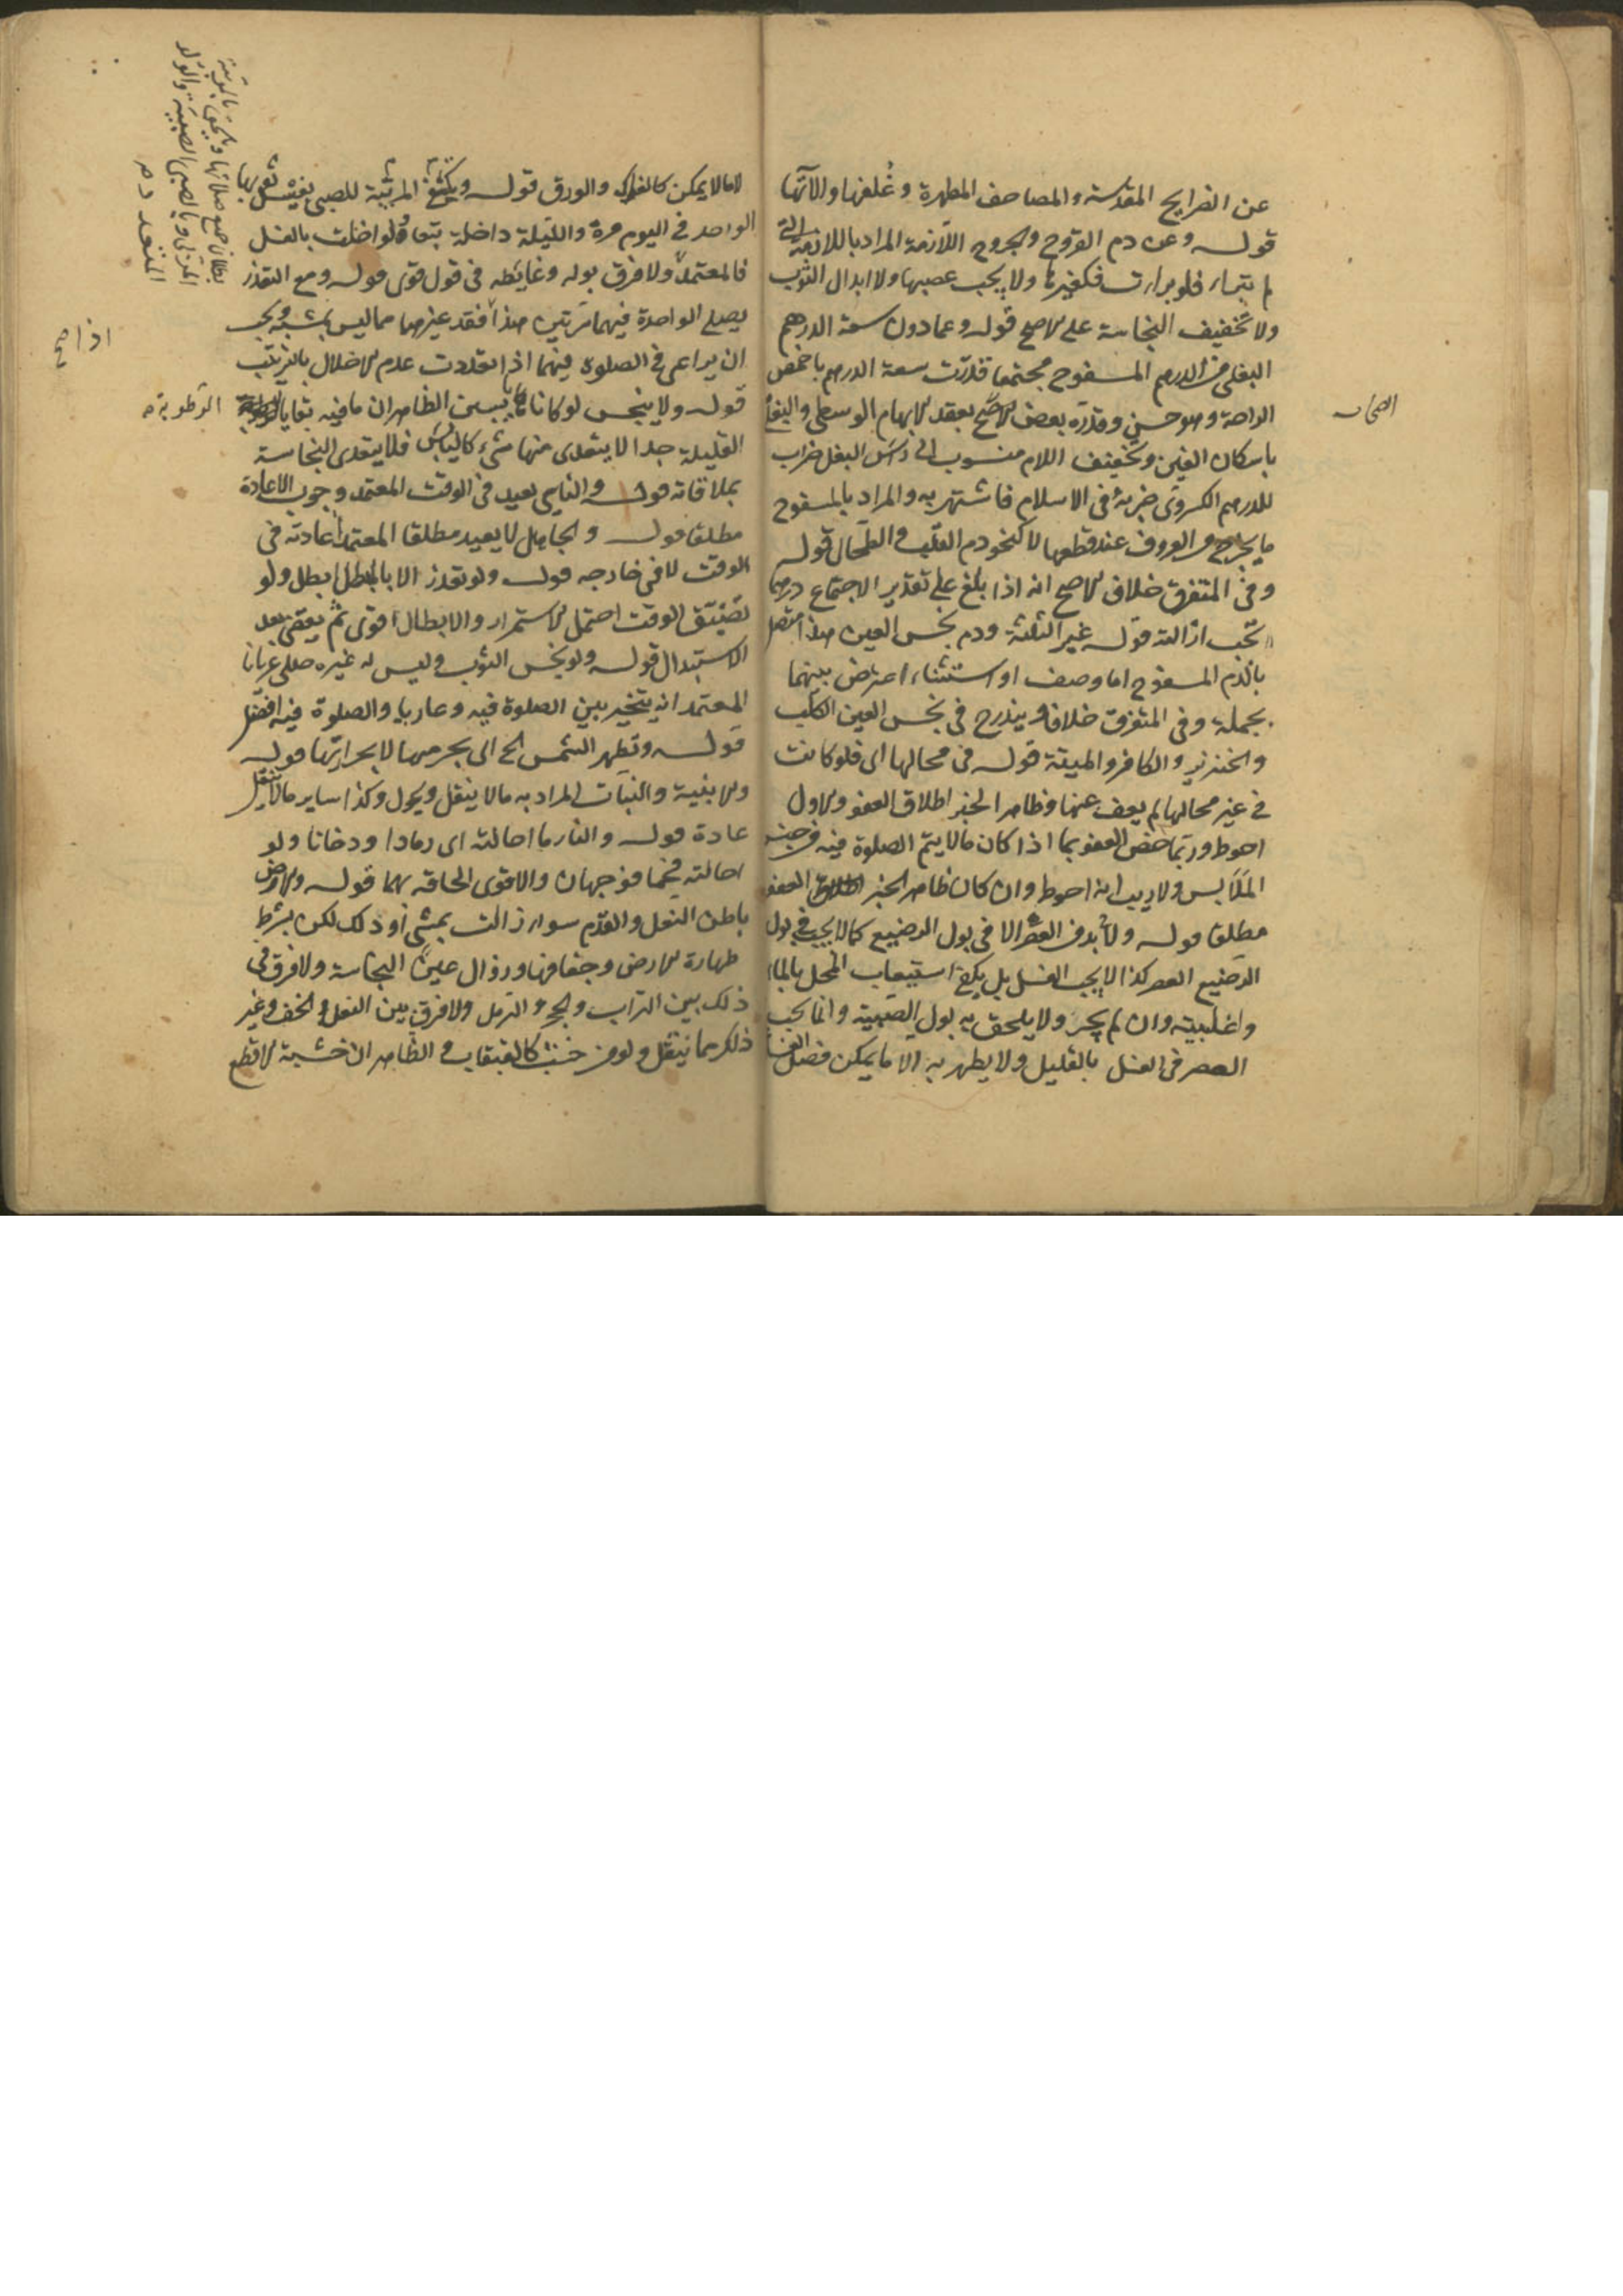 عن الضرايح المقدسة والمصاحف المطهرة وغلفها والآتها
قوله وعن دم القروح والجروح اللازمة المراد باللازمة التي
لم تبرأ، فلو برأت فكغيرها ولا يجب عصبها ولا ابدال الثوب
ولا تخفيف النجاسة على الاصح قوله وعما دون سعة الدرهم
البغلي من الدم المسفوح مجتمعا قدرت سعة الدرهم باخمص
الراحة وهو حسن وقدره بعض الاصحاب بعقد الابهام الوسطى والبغلي
باسكان الغين وتخفيف اللام منسوب الى راس البغل ضراب
للدرهم الكسروى ضربه في الاسلام فاشتهر به والمراد بالمسفوح
ما يخرج من العروق عند قطعها لا كنحو دم القلب والطحال قوله
وفي المتفرق خلاف الاصح انه اذا بلغ على تقدير الاجتماع درهما
تجب ازالته قوله غير الثلثة ودم نجس العين هذا متصل
بالدم المسفوح اما وصف او استثناء اعترض بينهما
بجملة وفي المتفرق خلاف ويندرج في نجس العين الكلب
والخنزير والكافر والميتة قوله في محالها اى فلو كانت
في غير محالها لم يعف عنها وظاهر الخبر اطلاق العفو والاول
احوط وربما خص العفو بما اذا كان مالا يتم الصلوة فيه من جنس
الملابس ولا ريب انه احوط وان كان ظاهر الخبر اطلاق العفو
مطلقا قوله ولا بد في العصر الا في بول الرضيع كما لا يجب في بول
الرضيع العصر كذا لا يجب الغسل بل يكفي استيعاب المحل بالماء
واغلبيته وان لم يجر ولا يلحق به بول الصبية وانما يجب
العصر في الغسل بالقليل ولا يطهر به الا ما يمكن فصل الغسالة
الصحاب
لا ما لا يمكن كالفواكه والورق قوله ويكتفى المربية للصبي بغسل ثوبها
الواحد في اليوم مرة والليلة داخلة تبعا ولو اخلت بالغسل
فالمعتمد ولا فرق بوله وغايطه في قول قوى قوله ومع التعذر
يصلى الواحدة فيهما مرتين هذا فقد غيرهما مما ليس بمشتبه ويجب
ان يراعى في الصلوة فيهما اذا تعددت عدم الاخلال بالترتيب
قوله ولا ينجس لو كانا يابسين الظاهر ان ما فيه بقايا
القليلة جدا لا يتعدى منها شيء كاليابس فلا يتعدى النجاسة
بملاقاته قوله والناسي يعيد في الوقت المعتمد وجوب الاعادة
مطلقا قوله والجاهل لا يعيد مطلقا المعتمد اعادته في
الوقت لا في خارجه قوله ولو تعذر الا بالمبطل ابطل ولو
تضيق الوقت احتمل الاستمرار والابطال اقوى ثم يقضي بعد
الاستبدال قوله ولو نجس الثوب وليس له غيره صلى عريانا
المعتمد انه يتخير بين الصلوة فيه وعاريا والصلوة فيه افضل
قوله وتطهر الشمس الخ الى بجرمها لا بحرارتها قوله
والابنية والنبات المراد به مالا ينقل ويحول وكذا ساير مالا ينقل
عادة قوله والنار ما احالته اى رمادا ودخانا ولو
احالته فحما فوجهان والاقوى الحاقه بهما قوله والارض
باطن النعل والقدم سواء زالت بمشى او دلك لكن بشرط
طهارة الارض وجفافها وزوال عين النجاسة ولا فرق في
ذلك بين التراب والحجر والرمل ولا فرق بين النعل والخف وغير
ذلك مما ينتعل ولو من خشب كالقبقاب والظاهر ان خشبة الاقطع
بطلان جميع صلاتها ويلحق بالمربية
المربى وبالصبي الصبية والولد
المتعدد م
اذا صح
الرطوبة م